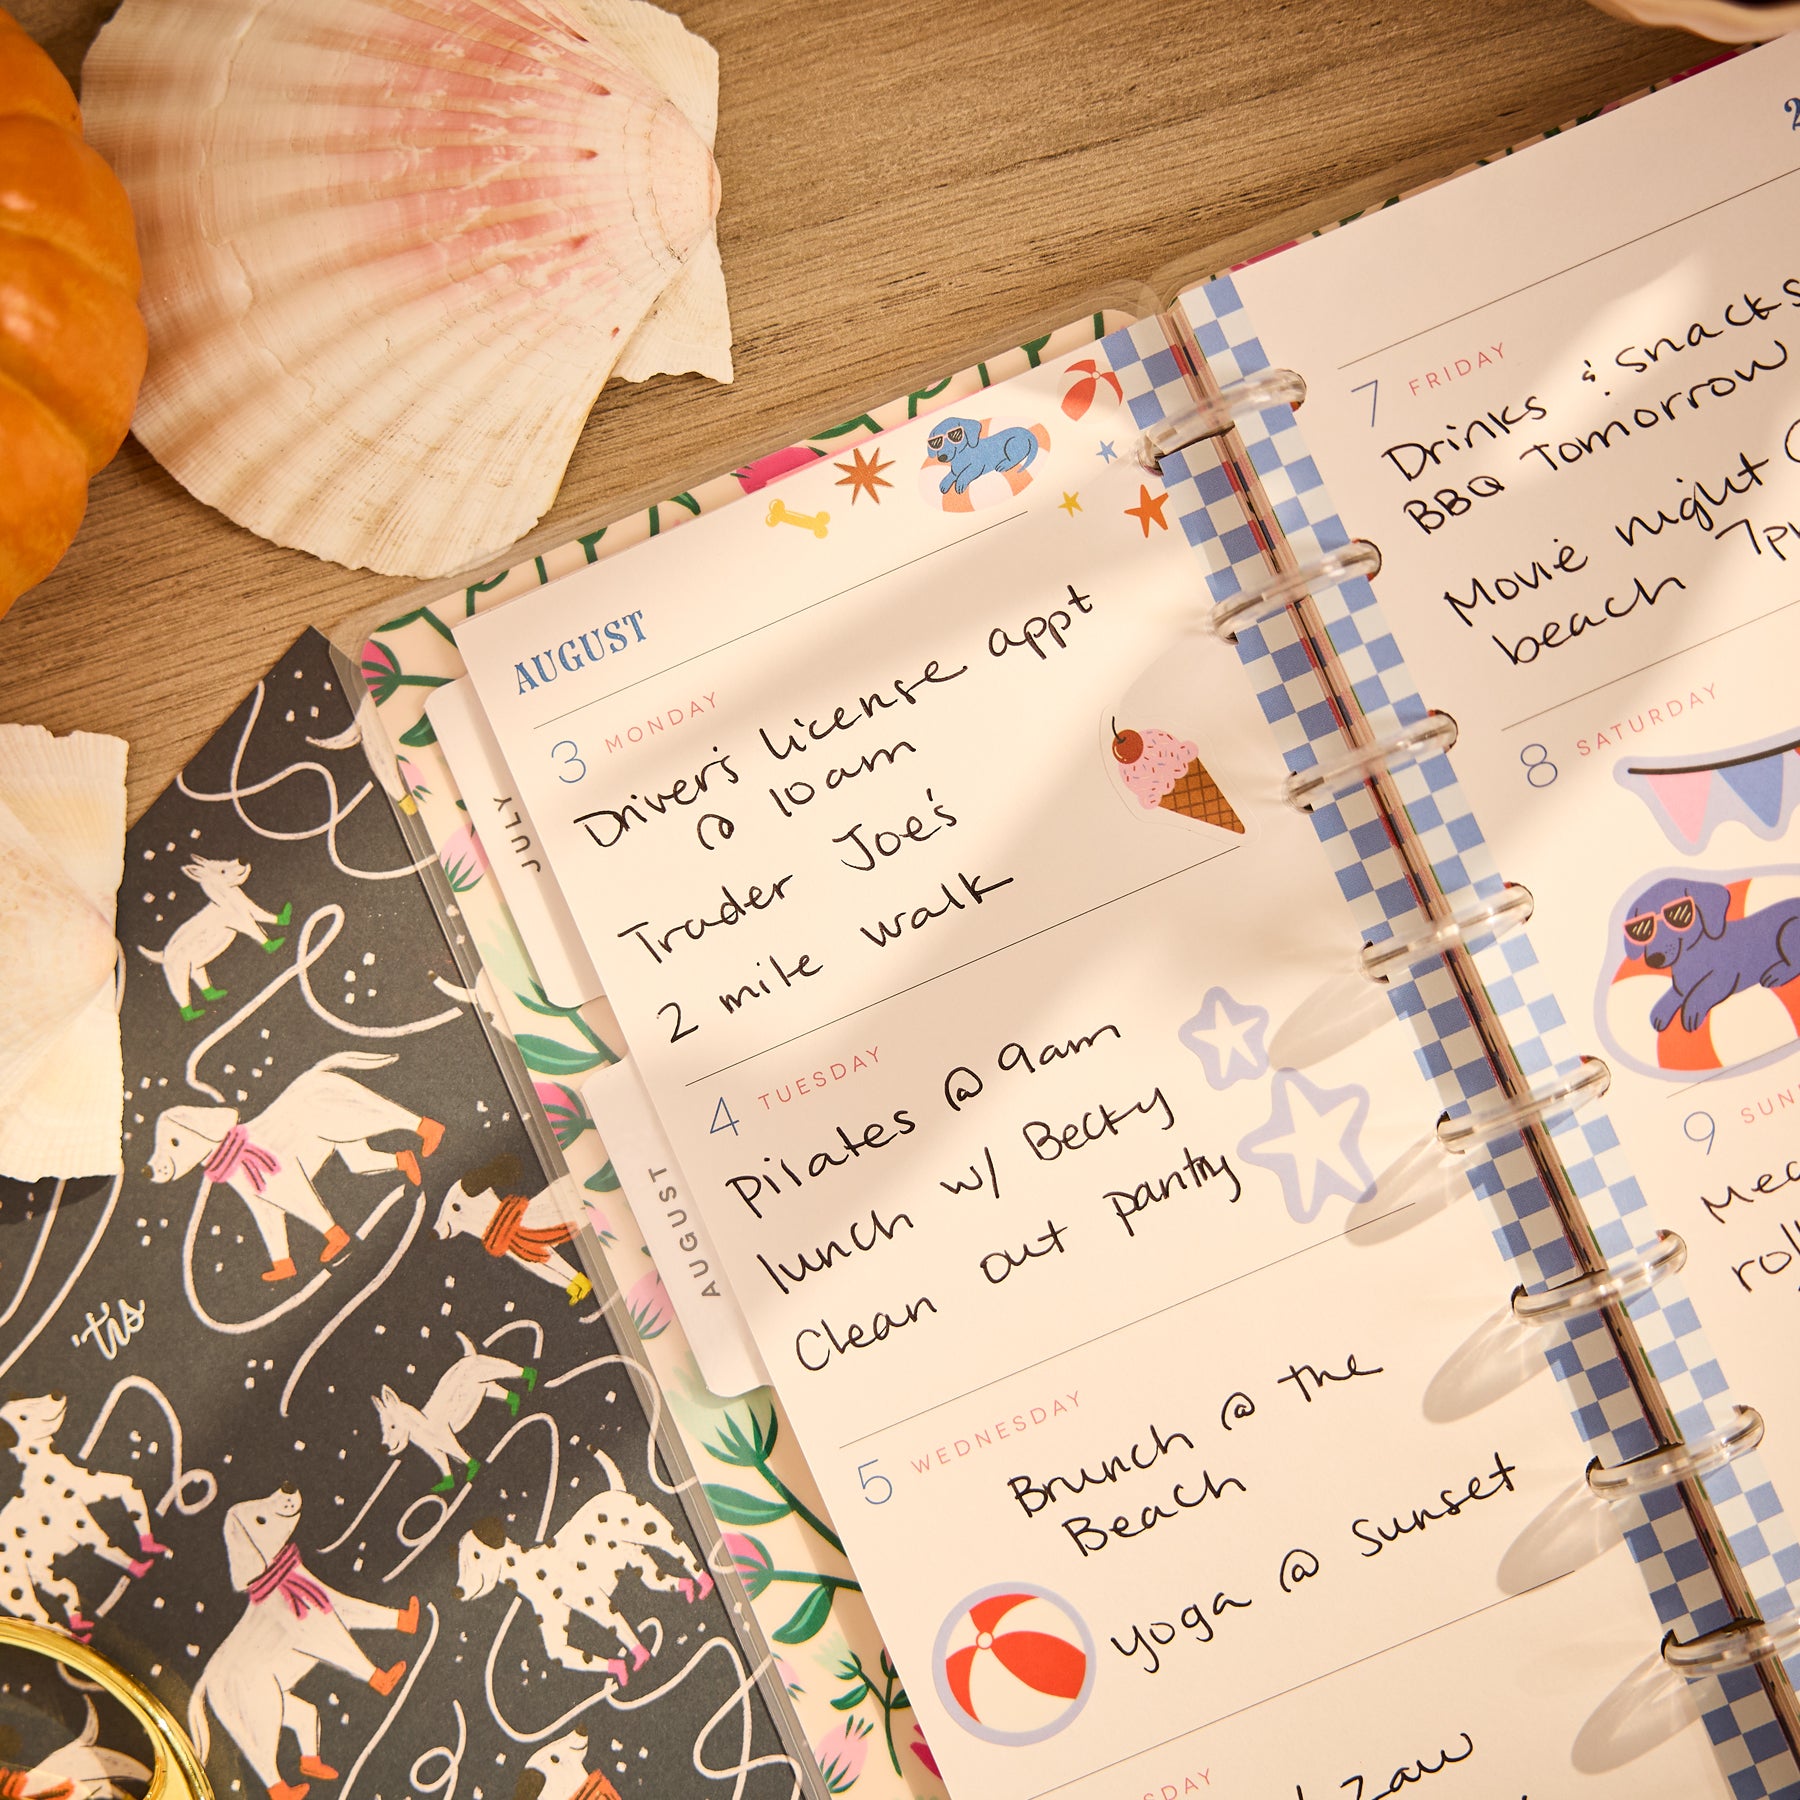 AUGUST
3 MONDAY
Driver's license appt
@ 10am
Trader Joe's
2 mile walk
4 TUESDAY
Pilates @ 9am
lunch w/ Becky
Clean out pantry
5 WEDNESDAY
Brunch @ the
Beach
yoga @ Sunset
7 FRIDAY
Drinks & snacks
BBQ Tomorrow
Movie night
beach
8 SATURDAY
9
JULY
AUGUST
'tis